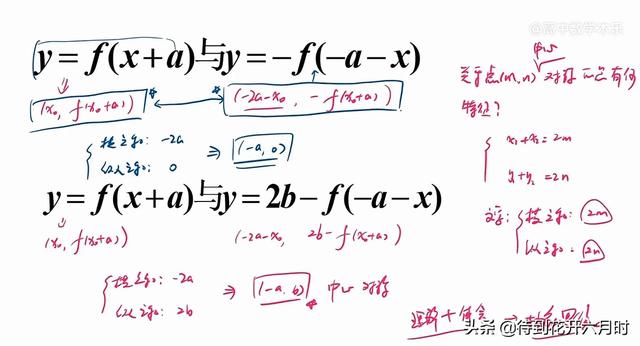 @高中数学木乐
y = f(x+a)与y = -f(-a-x)
(x₀, f(x₀+a))
(-2a-x₀, -f(x₀+a))
横之和: -2a
纵之和: 0
⇒ (-a, 0)
y = f(x+a)与y = 2b-f(-a-x)
(x₀, f(x₀+a))
(-2a-x₀, 2b-f(x₀+a))
横之和: -2a
纵之和: 2b
⇒ (-a, b) 中心对称
中心
关于点(m,n)对称 二点有何
特征?
x₁+x₂=2m
y₁+y₂=2n
横之和: 2m
纵之和: 2n
理解+体会 →
头条 @待到花开六月时